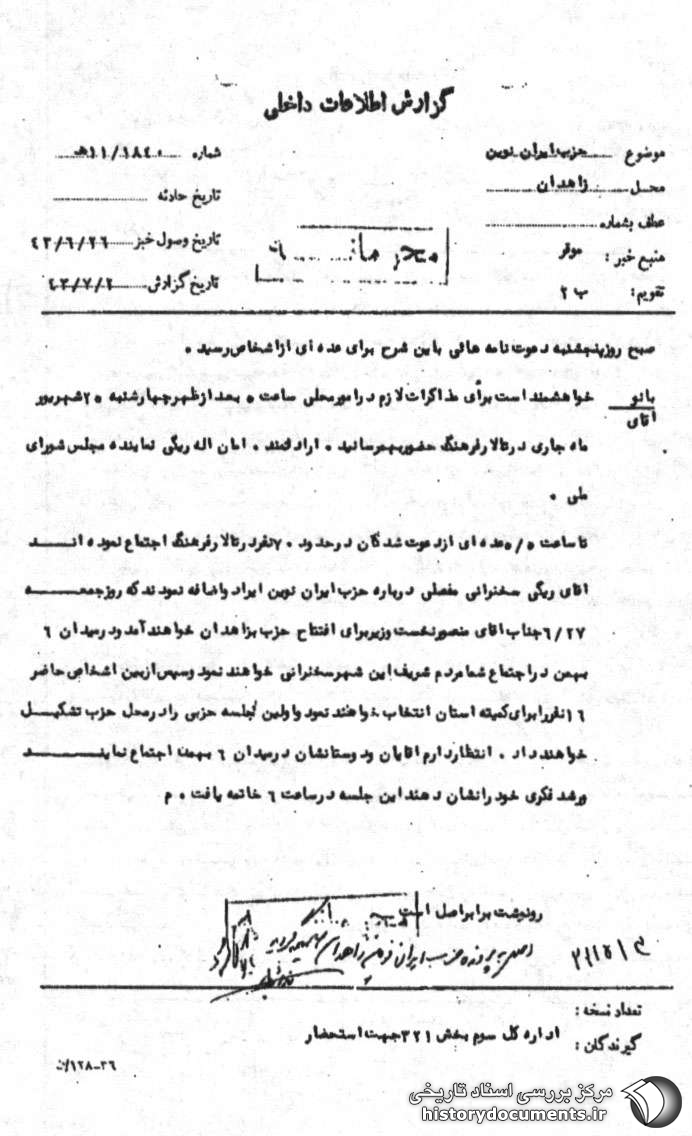 گزارش اطلاعات داخلی
موضوع حزب ایران نوین
شماره ۱۱/۱۸۴۰ه
محل زاهدان
تاریخ حادثه
عطف بشماره
تاریخ وصول خبر ۴۳/۶/۲۶
منبع خبر : موقر
محرمانه
تاریخ گزارش ۴۳/۷/۲
تقویم : ب ۲
صبح روز پنجشنبه دعوت نامه هائی باین شرح برای عده ای از اشخاص رسید .
بانو
آقای
خواهشمند است برای مذاکرات لازم در امور محلی ساعت ۵ بعد از ظهر چهارشنبه ۲۵ شهریور
ماه جاری در تالار فرهنگ حضور بهم رسانید . ارادتمند . امان اله ریگی نماینده مجلس شورای
ملی .
تا ساعت ۵/۵ عده ای از دعوت شدگان در حدود ۷۰ نفر در تالار فرهنگ اجتماع نموده انـــد
آقای ریگی سخنرانی مفصلی درباره حزب ایران نوین ایراد و اضافه نمودند که روز جمعـــه
۶/۲۷ جناب آقای منصور نخست وزیر برای افتتاح حزب بزاهدان خواهند آمد و در میدان ۶
بهمن در اجتماع شما مردم شریف این شهر سخنرانی خواهند نمود و سپس از بین اشخاص حاضر
۱۶ نفر را برای کمیته استان انتخاب خواهند نمود و اولین جلسه حزبی را در محل حزب تشکیـــل
خواهند داد . انتظار دارم آقایان و دوستانشان در میدان ۶ بهمن اجتماع نماینـــد
و رشد فکری خود را نشان دهند این جلسه در ساعت ۶ خاتمه یافت . م
رونوشت برابر اصل است
اصل به پرونده حزب ایران نوین زاهدان
تعداد نسخه :
گیرندگان : اداره کل سوم بخش ۳۲۱ جهت استحضار
۳۶-۱۲۸/ن
مرکز بررسی اسناد تاریخی
historydocuments.ir